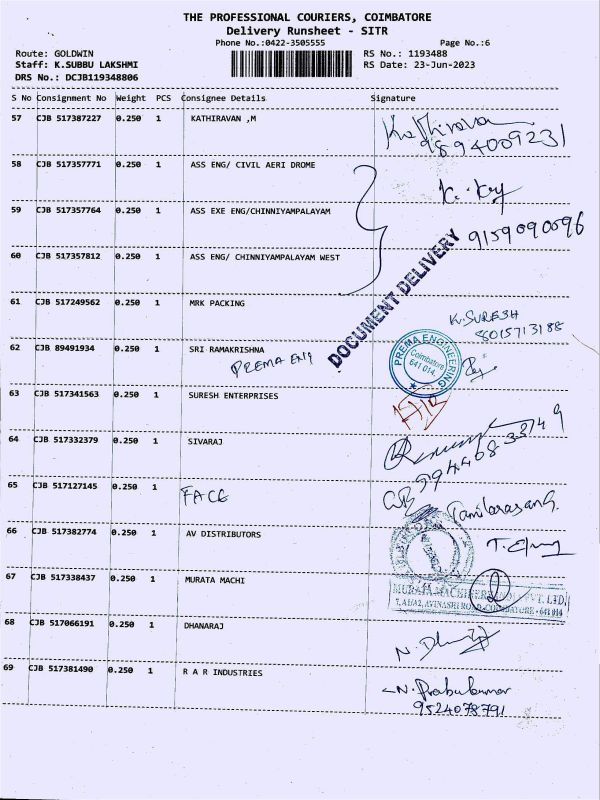 THE PROFESSIONAL COURIERS, COIMBATORE
Delivery Runsheet - SITR
Phone No.:0422-3505555 Page No.:6
Route: GOLDWIN RS No.: 1193488
Staff: K.SUBBU LAKSHMI RS Date: 23-Jun-2023
DRS No.: DCJB119348806
S No Consignment No Weight PCS Consignee Details Signature
57 CJB 517387227 0.250 1 KATHIRAVAN ,M Kathiravan
9894009231
58 CJB 517357771 0.250 1 ASS ENG/ CIVIL AERI DROME
59 CJB 517357764 0.250 1 ASS EXE ENG/CHINNIYAMPALAYAM
9159090596
60 CJB 517357812 0.250 1 ASS ENG/ CHINNIYAMPALAYAM WEST
DOCUMENT DELIVERY
61 CJB 517249562 0.250 1 MRK PACKING K. SURESH
8015713188
62 CJB 89491934 0.250 1 SRI RAMAKRISHNA
PREMA ENG
PREMA ENGINEERING
Coimbatore
641 014.
63 CJB 517341563 0.250 1 SURESH ENTERPRISES
64 CJB 517332379 0.250 1 SIVARAJ
9944083349
65 CJB 517127145 0.250 1 FACE Tamilarasan G.
66 CJB 517382774 0.250 1 AV DISTRIBUTORS
67 CJB 517338437 0.250 1 MURATA MACHI
MURATA MACHINERY INDIA PVT. LTD.
AVINASHI ROAD, COIMBATORE - 641 014
68 CJB 517066191 0.250 1 DHANARAJ
69 CJB 517381490 0.250 1 R A R INDUSTRIES N. Prabukumar
9524078791